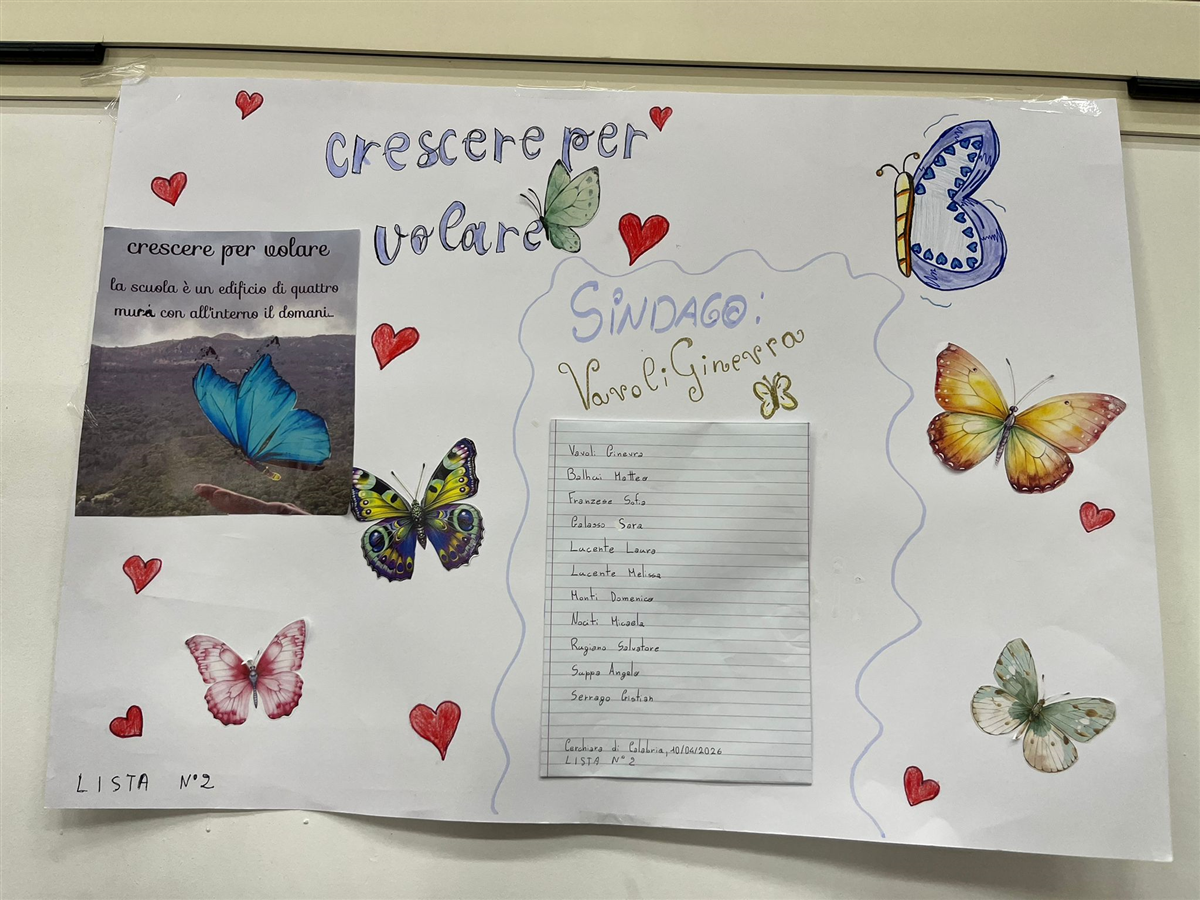 crescere per
volare
crescere per volare
la scuola è un edificio di quattro
mura con all'interno il domani...
SINDACO:
Vavoli Ginevra
Vavoli Ginevra
Balhai Matteo
Franzese Sofia
Galasso Sara
Lucente Laura
Lucente Melissa
Monti Domenico
Nociti Micaela
Rugiano Salvatore
Suppa Angela
Serrago Cristian
Cerchiara di Calabria, 10/04/2026
LISTA N° 2
LISTA N° 2